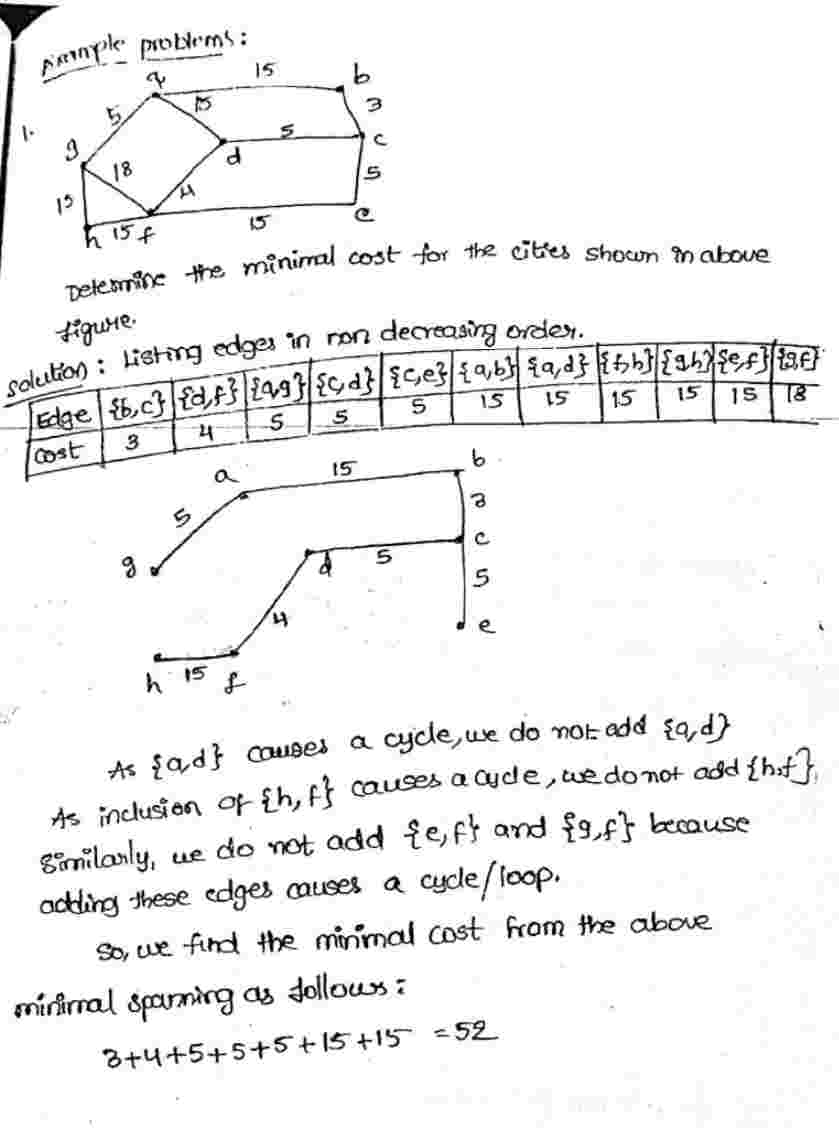 Example problems:
a 15 b
5 15 3
1.
g 18 d 5 c
15 4 5
h 15 f 15 e
Determine the minimal cost for the cities shown in above
figure.
solution: Listing edges in non decreasing order.
Edge {b,c} {d,f} {a,g} {c,d} {c,e} {a,b} {a,d} {f,h} {g,h} {e,f} {g,f}
cost 3 4 5 5 5 15 15 15 15 15 18
a 15 b
5 3
g d 5 c
4 5
h 15 f e
As {a,d} causes a cycle, we do not add {a,d}
As inclusion of {h,f} causes a cycle, we do not add {h,f},
similarly, we do not add {e,f} and {g,f} because
adding these edges causes a cycle/loop.
So, we find the minimal cost from the above
minimal spanning as follows:
3+4+5+5+5+15+15 = 52